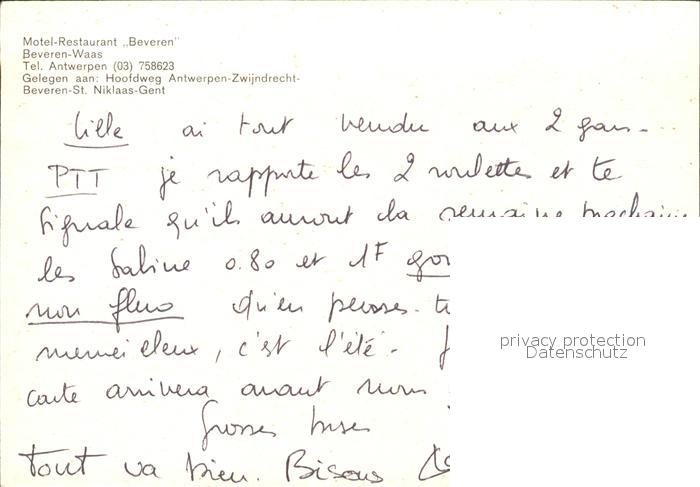 Motel-Restaurant „Beveren"
Beveren-Waas
Tel. Antwerpen (03) 758623
Gelegen aan: Hoofdweg Antwerpen-Zwijndrecht-
Beveren-St. Niklaas-Gent
Lille ai tout vendu aux 2 gars-
PTT je rapporte les 2 roulettes et te
signale qu'ils auront la semaine prochaine
les Sabine 0.80 et 1F
non fluo qu'en penses-
merveilleux, c'est l'été-
carte arrivera avant nous
Grosses bises
tout va bien. Bisous
privacy protection
Datenschutz